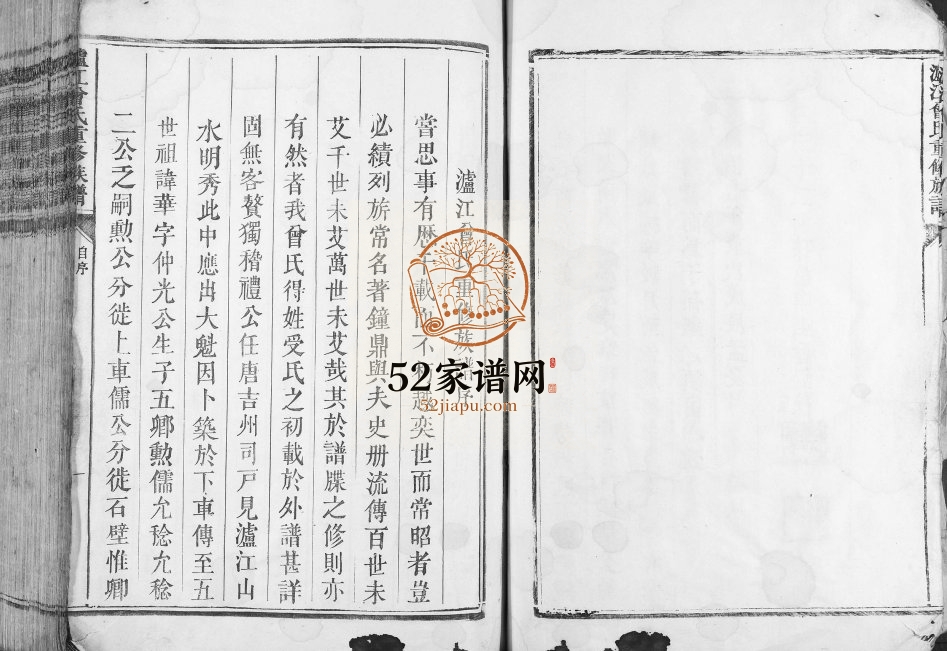 瀘江曾氏重修族譜
瀘江曾氏重修族譜序
嘗思事有歷千載而不越奕世而常昭者豈
必績列旂常名著鐘鼎與夫史册流傳百世未
艾千世未艾萬世未艾哉其於譜牒之修則亦
有然者我曾氏得姓受氏之初載於外譜甚詳
固無客贅獨稽禮公任唐吉州司戶見瀘江山
水明秀此中應出大魁因卜築於下車傳至五
世祖諱華字仲光公生子五卿勲儒允稔允稔
二公乏嗣勲公分徙上車儒公分徙石壁惟卿
瀘江曾氏重修族譜
自序
一
52家谱网
52jiapu.com